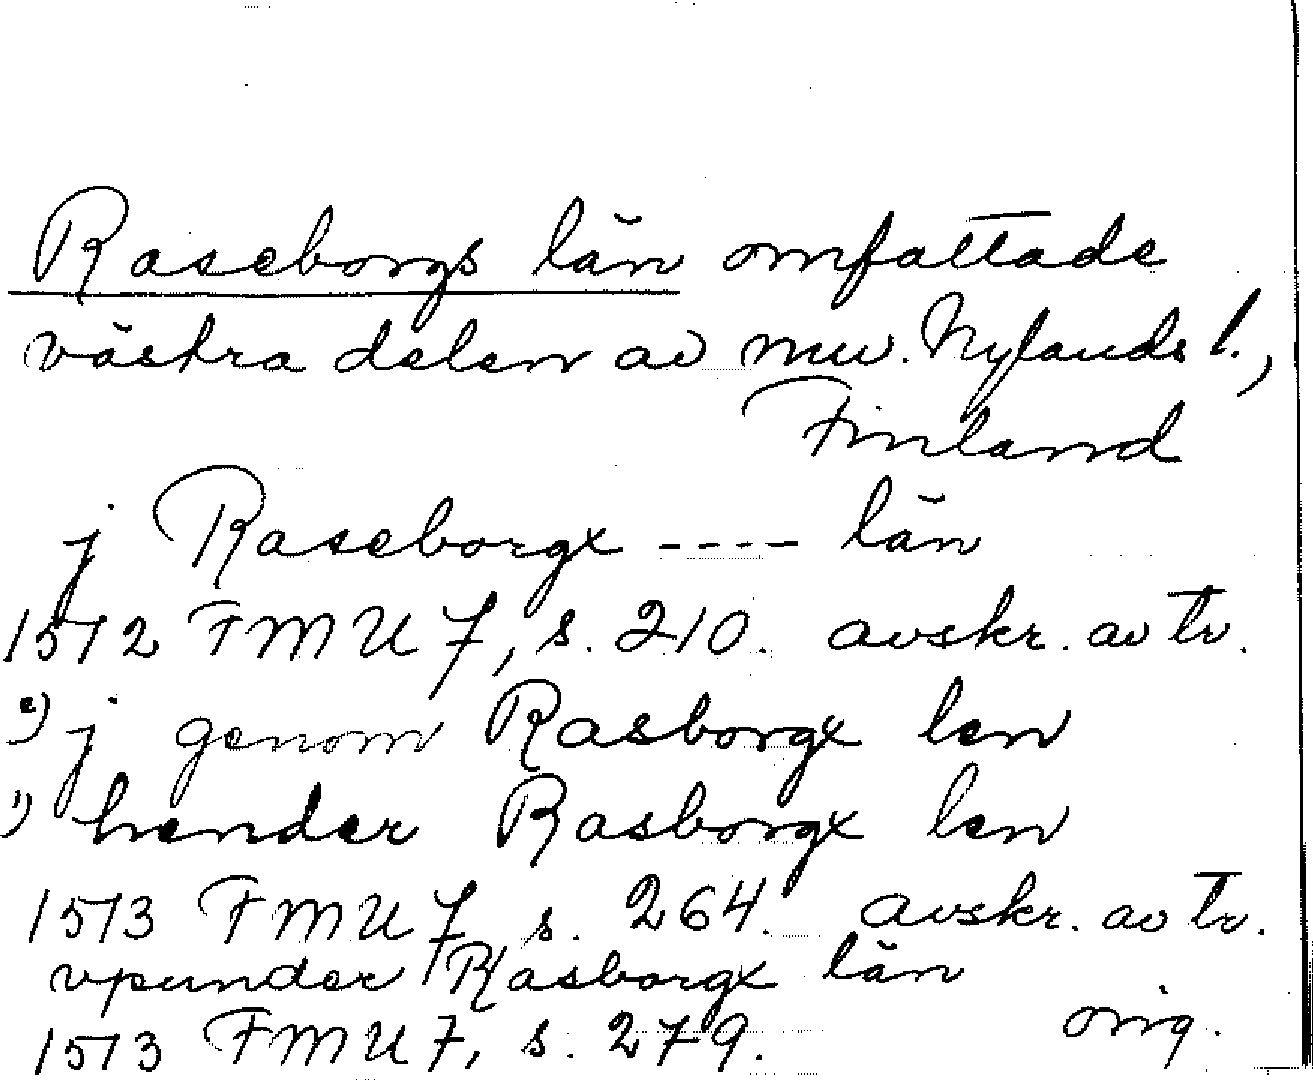 Raseborgs län omfattade
västra delen av nuv. Nylands l.,
Finland
j Raseborgx ---- län
1512 FMU 7, s. 210. avskr. av tr.
2) j genom Rasborgx len
1) hender Rasborgx len
1513 FMU 7 s. 264. avskr. av tr.
vpunder Rasborgx län
1513 FMU 7, s. 279. orig.